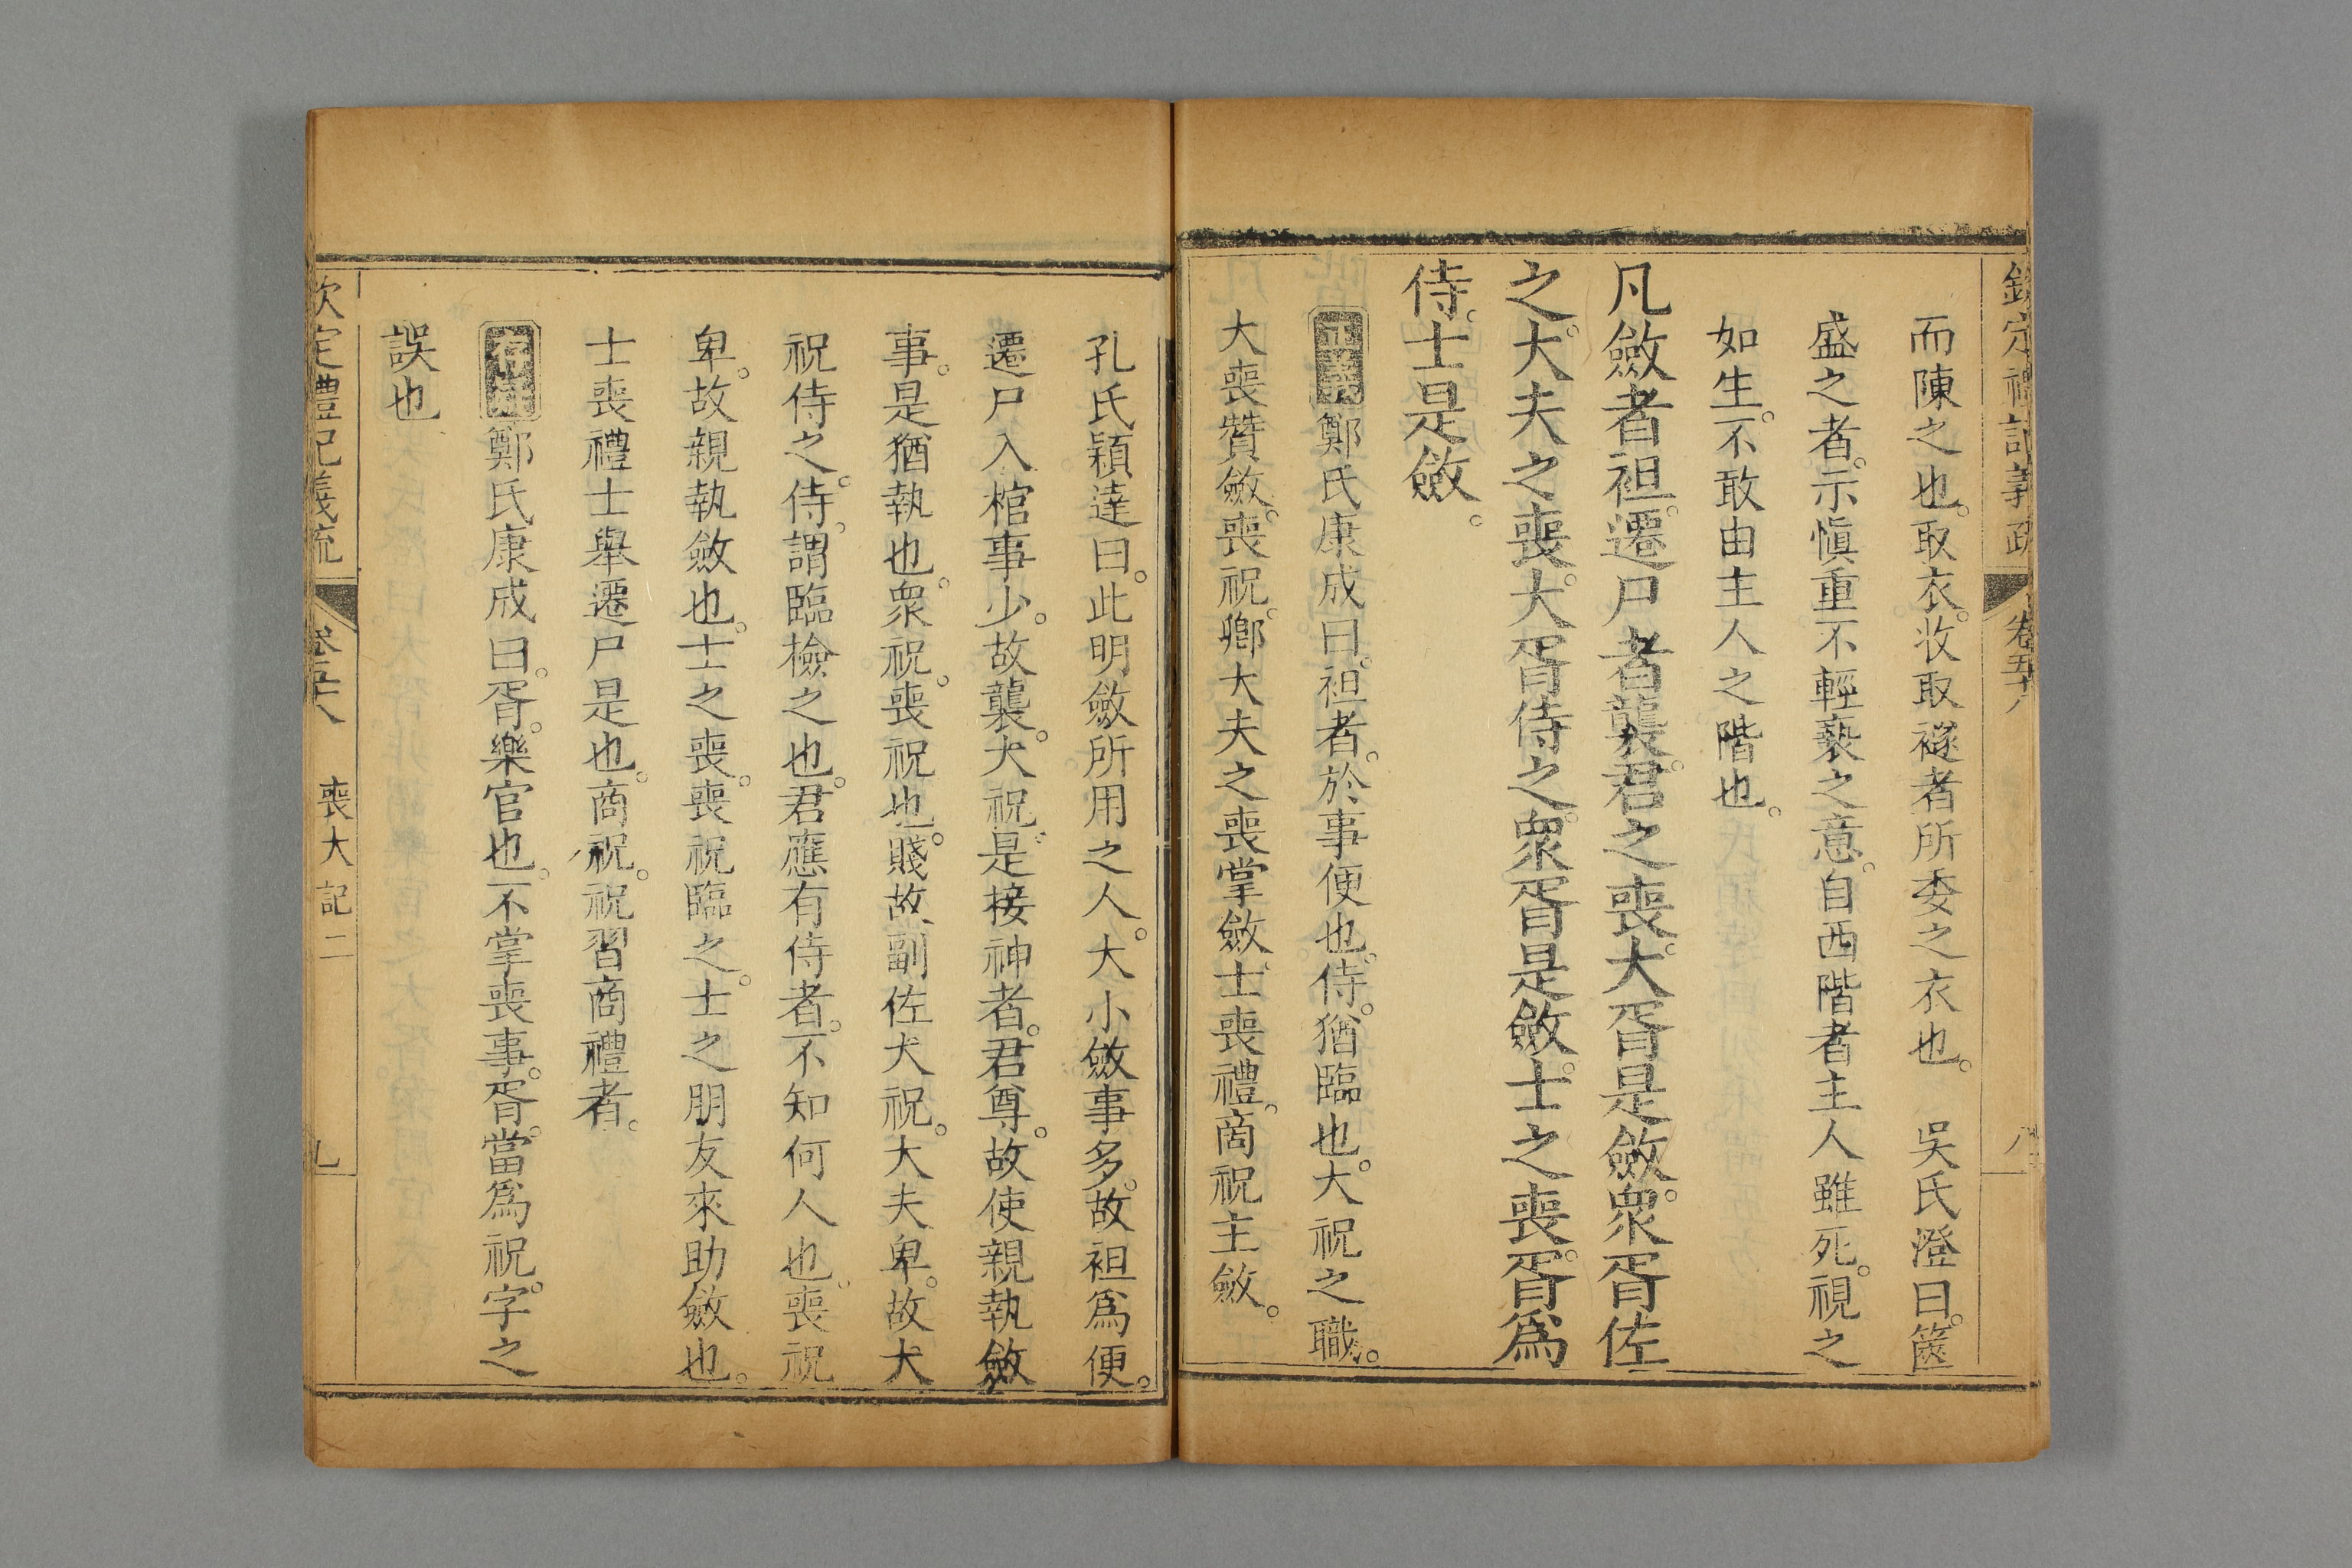 欽定禮記義疏 卷五十八 八
而陳之也。取衣。收取襚者所委之衣也。 吳氏澄曰。篋
盛之者。示愼重不輕褻之意。自西階者主人雖死。視之
如生。不敢由主人之階也。
凡斂者袒。遷尸者襲。君之喪。大胥是斂。衆胥佐
之。大夫之喪。大胥侍之。衆胥是斂。士之喪。胥爲
侍。士是斂。
正義鄭氏康成曰。袒者。於事便也。侍。猶臨也。大祝之職。
大喪贊斂。喪祝。卿大夫之喪掌斂。士喪禮。商祝主斂。
孔氏穎達曰。此明斂所用之人。大小斂事多。故袒爲便。
遷尸入棺事少。故襲。大祝。是接神者。君尊。故使親執斂
事。是猶執也。衆祝。喪祝也。賤故副佐大祝。大夫卑。故大
祝侍之。侍。謂臨檢之也。君應有侍者。不知何人也。喪祝
卑。故親執斂也。士之喪。喪祝臨之。士之朋友來助斂也。
士喪禮士舉遷尸是也。商祝。祝習商禮者。
存疑鄭氏康成曰。胥。樂官也。不掌喪事。胥。當爲祝。字之
誤也
欽定禮記義疏 卷五十八 喪大記二 九